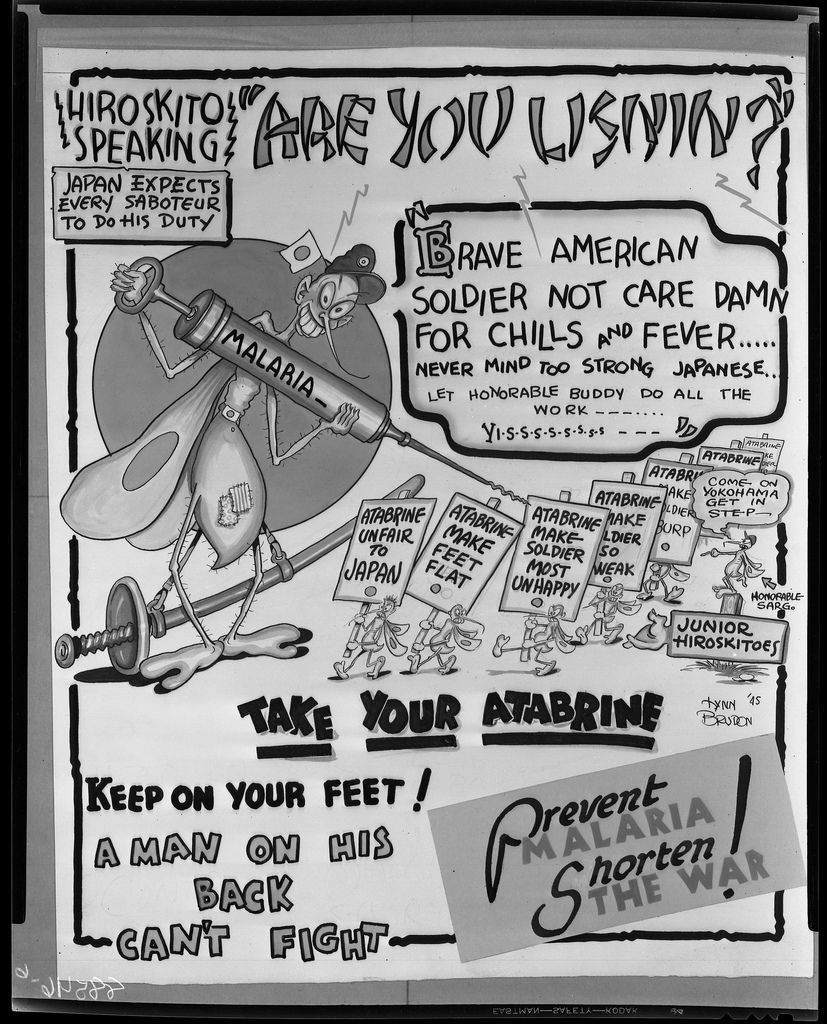 HIROSKITO
SPEAKING
"ARE YOU LISNIN?"
JAPAN EXPECTS
EVERY SABOTEUR
TO DO HIS DUTY
"BRAVE AMERICAN
SOLDIER NOT CARE DAMN
FOR CHILLS AND FEVER.....
NEVER MIND TOO STRONG JAPANESE...
LET HONORABLE BUDDY DO ALL THE
WORK --------....
YI-S-S-S-S-S-S-S --- - "
MALARIA-
ATABRINE
UNFAIR
TO
JAPAN
ATABRINE
MAKE
FEET
FLAT
ATABRINE
MAKE
SOLDIER
MOST
UNHAPPY
ATABRINE
MAKE
SOLDIER
SO
WEAK
ATABRI
MAKE
LDIER
BURP
ATABRINE
ATABRINE
KE
COME ON
YOKOHAMA
GET IN
STEP-
HONORABLE
SARG.
JUNIOR
HIROSKITOES
TAKE YOUR ATABRINE
LYNN '45
BRUDON
KEEP ON YOUR FEET!
A MAN ON HIS
BACK
CAN'T FIGHT
Prevent
MALARIA
Shorten!
THE WAR
88546-6
EASTMAN-SAFETY-KODAK